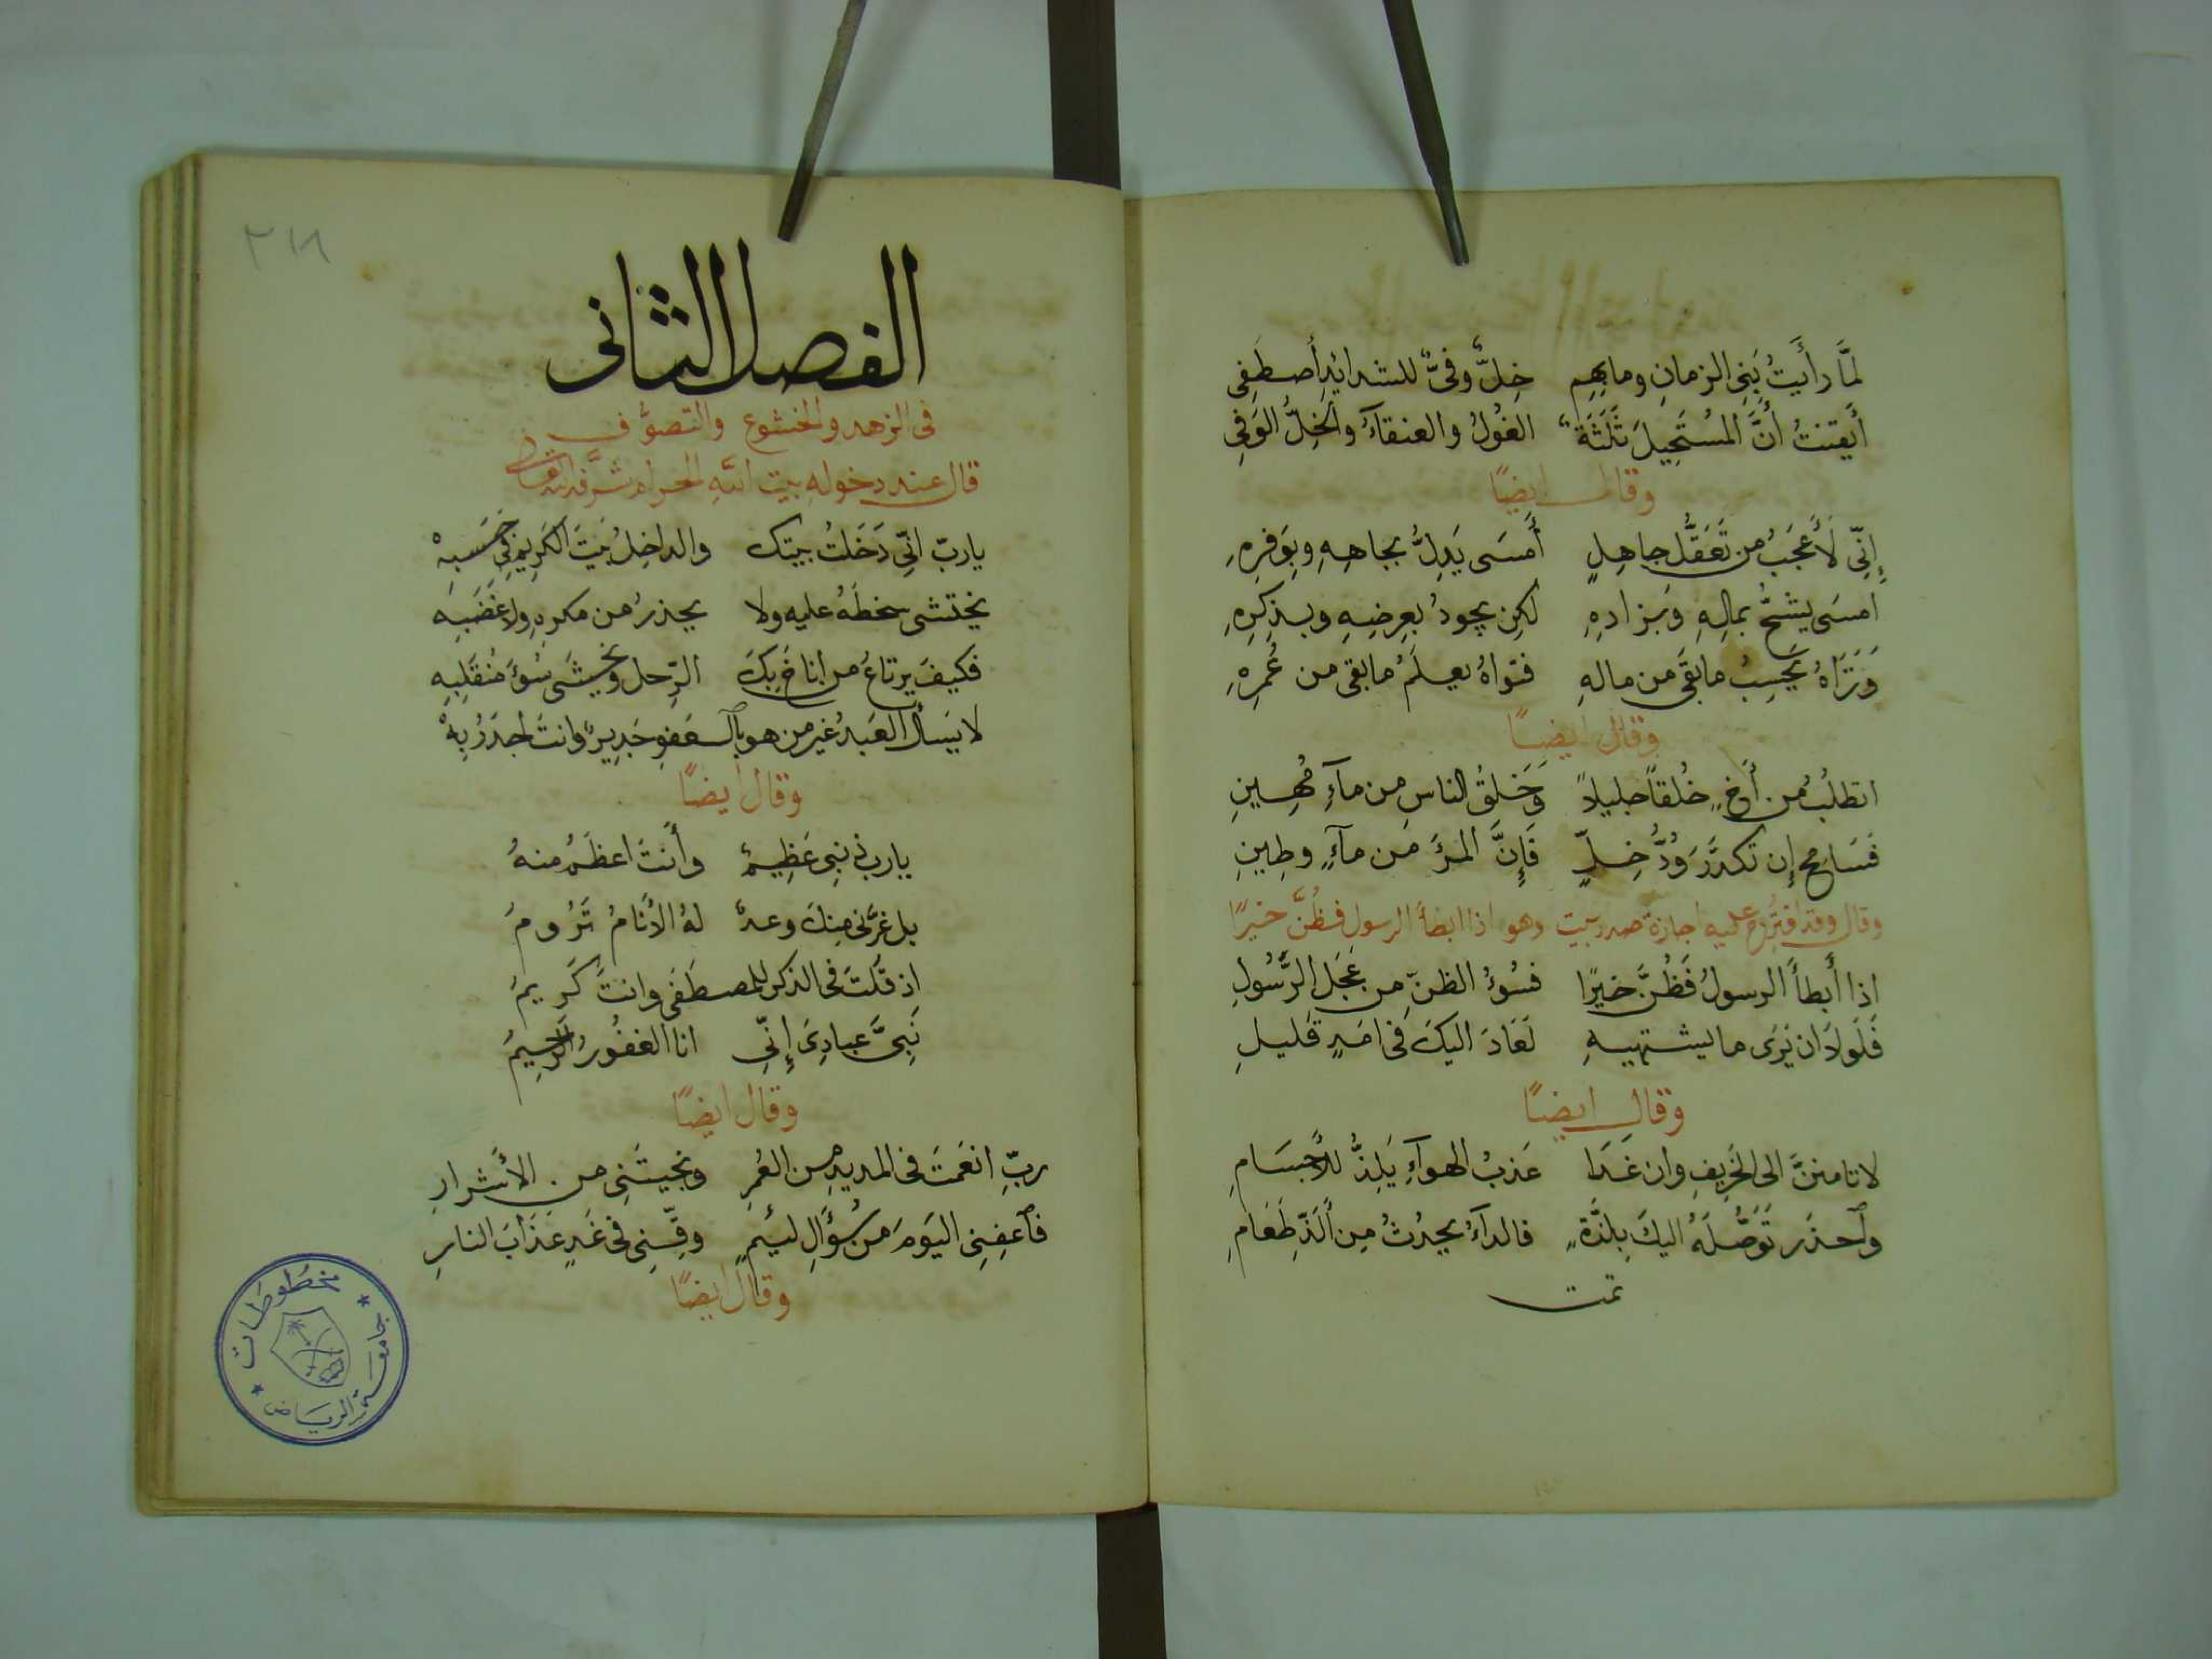 لمَّا رأَيتُ بَنِى الزمانِ وما بهِم خِلٌّ وفىٌّ للشدائِد أَصطَفِى
أَيقنتُ أنَّ المُستَحِيلَ ثَلَثَةٌ الغُولُ والعنقآءُ والخِلُّ الوَفِى
وقال ايضًا
إِنِّى لَأَعجَبُ من تَعَقُّل جاهِلٍ أَمسَى يَدِلُّ بجاهِهِ وبِوَفرِهِ
امسَى يشحُّ بمالِهِ وَبزادِهِ لكِن يجودُ بعِرضِهِ وبذِكرِهِ
وَتَرَاهُ يَحسِبُ ما بَقَى من مالهِ فتراهُ يعلَمُ ما بقى من عُمرِهِ
وقال ايضًا
اتطلُبُ من أَخٍ خُلقًا جليلاً وَخَلقُ الناسِ مِن مآءٍ مُهِينِ
فسَامِح إِن تكدَّرَ وُدُّ خِلٍّ فَإِنَّ المرَءَ مَن مآءٍ وطِينِ
وقال وقد اقترُح عليه اجازة صدر بيت وهو اذا ابطأ الرسول فظُنَّ خيرًا
اذا أَبطأَ الرسولُ فَظُنَّ خيرًا فسُوءُ الظنِّ مِن عَجَل الرَّسُولِ
فَلَولاَ ان يَرَى ما يشتهيهِ لَعَادَ اليكَ فى امَدٍ قليلِ
وقال ايضًا
لا تامننَّ الى الخَرِيفِ وان غَدَا عَذبُ الهوآءِ يَلِذُّ للأَجسَامِ
وٱحذَر تَوَصُّلَهُ اليكَ بِلَذَّةٍ فالدآءُ يحدُثُ مِن أَلَذِّ طَعَامِ
تمت
٢١٨
الفصل الثانى
فى الزهد والخشوع والتصوُّف
قال عند دخوله بيت اللّه الحرام شرَّفه الله تعالى
ياربّ انِّى دَخَلتُ بيتك والداخِلُ بَيتَ الكَرِيم فى حَسَبِهْ
يختشى سخطَهُ عليه ولا يحذرُ من مكرِهِ ولا غَضَبِه
فكيفَ يرتاعُ من أناخَ بِكَ الرّحل ويخشَى سُوءَ مُنقَلَبِه
لا يَسأل العَبدُ غيرَ من هو بٱلعَفوِ جَدِيرٌ وانتَ أجدَرُ بِهْ
وقال ايضًا
يارب ذنبِى عَظِيمٌ وأَنتَ اعظَمُ منهُ
بل غرَّنى مِنكَ وعدٌ لهُ الأَنَامُ تَرُومُ
اِذ قُلتَ فى الذكر للمصطَفَى وانتَ كَرِيمُ
نَبِىَّ عبادِىَ إِنِّى انا الغفُورُ الرَّحِيمُ
وقال ايضًا
ربِّ انعَمتَ فى المديدِ من العُمرِ ونجيتَنِى من الأَشرارِ
فٱعفِنِى اليَومَ مَن سُؤَالِ لئِيمٍ وقِّنِى فى غَدٍ عَذَابَ النارِ
وقال ايضًا
مخطوطات
جامعة الرياض